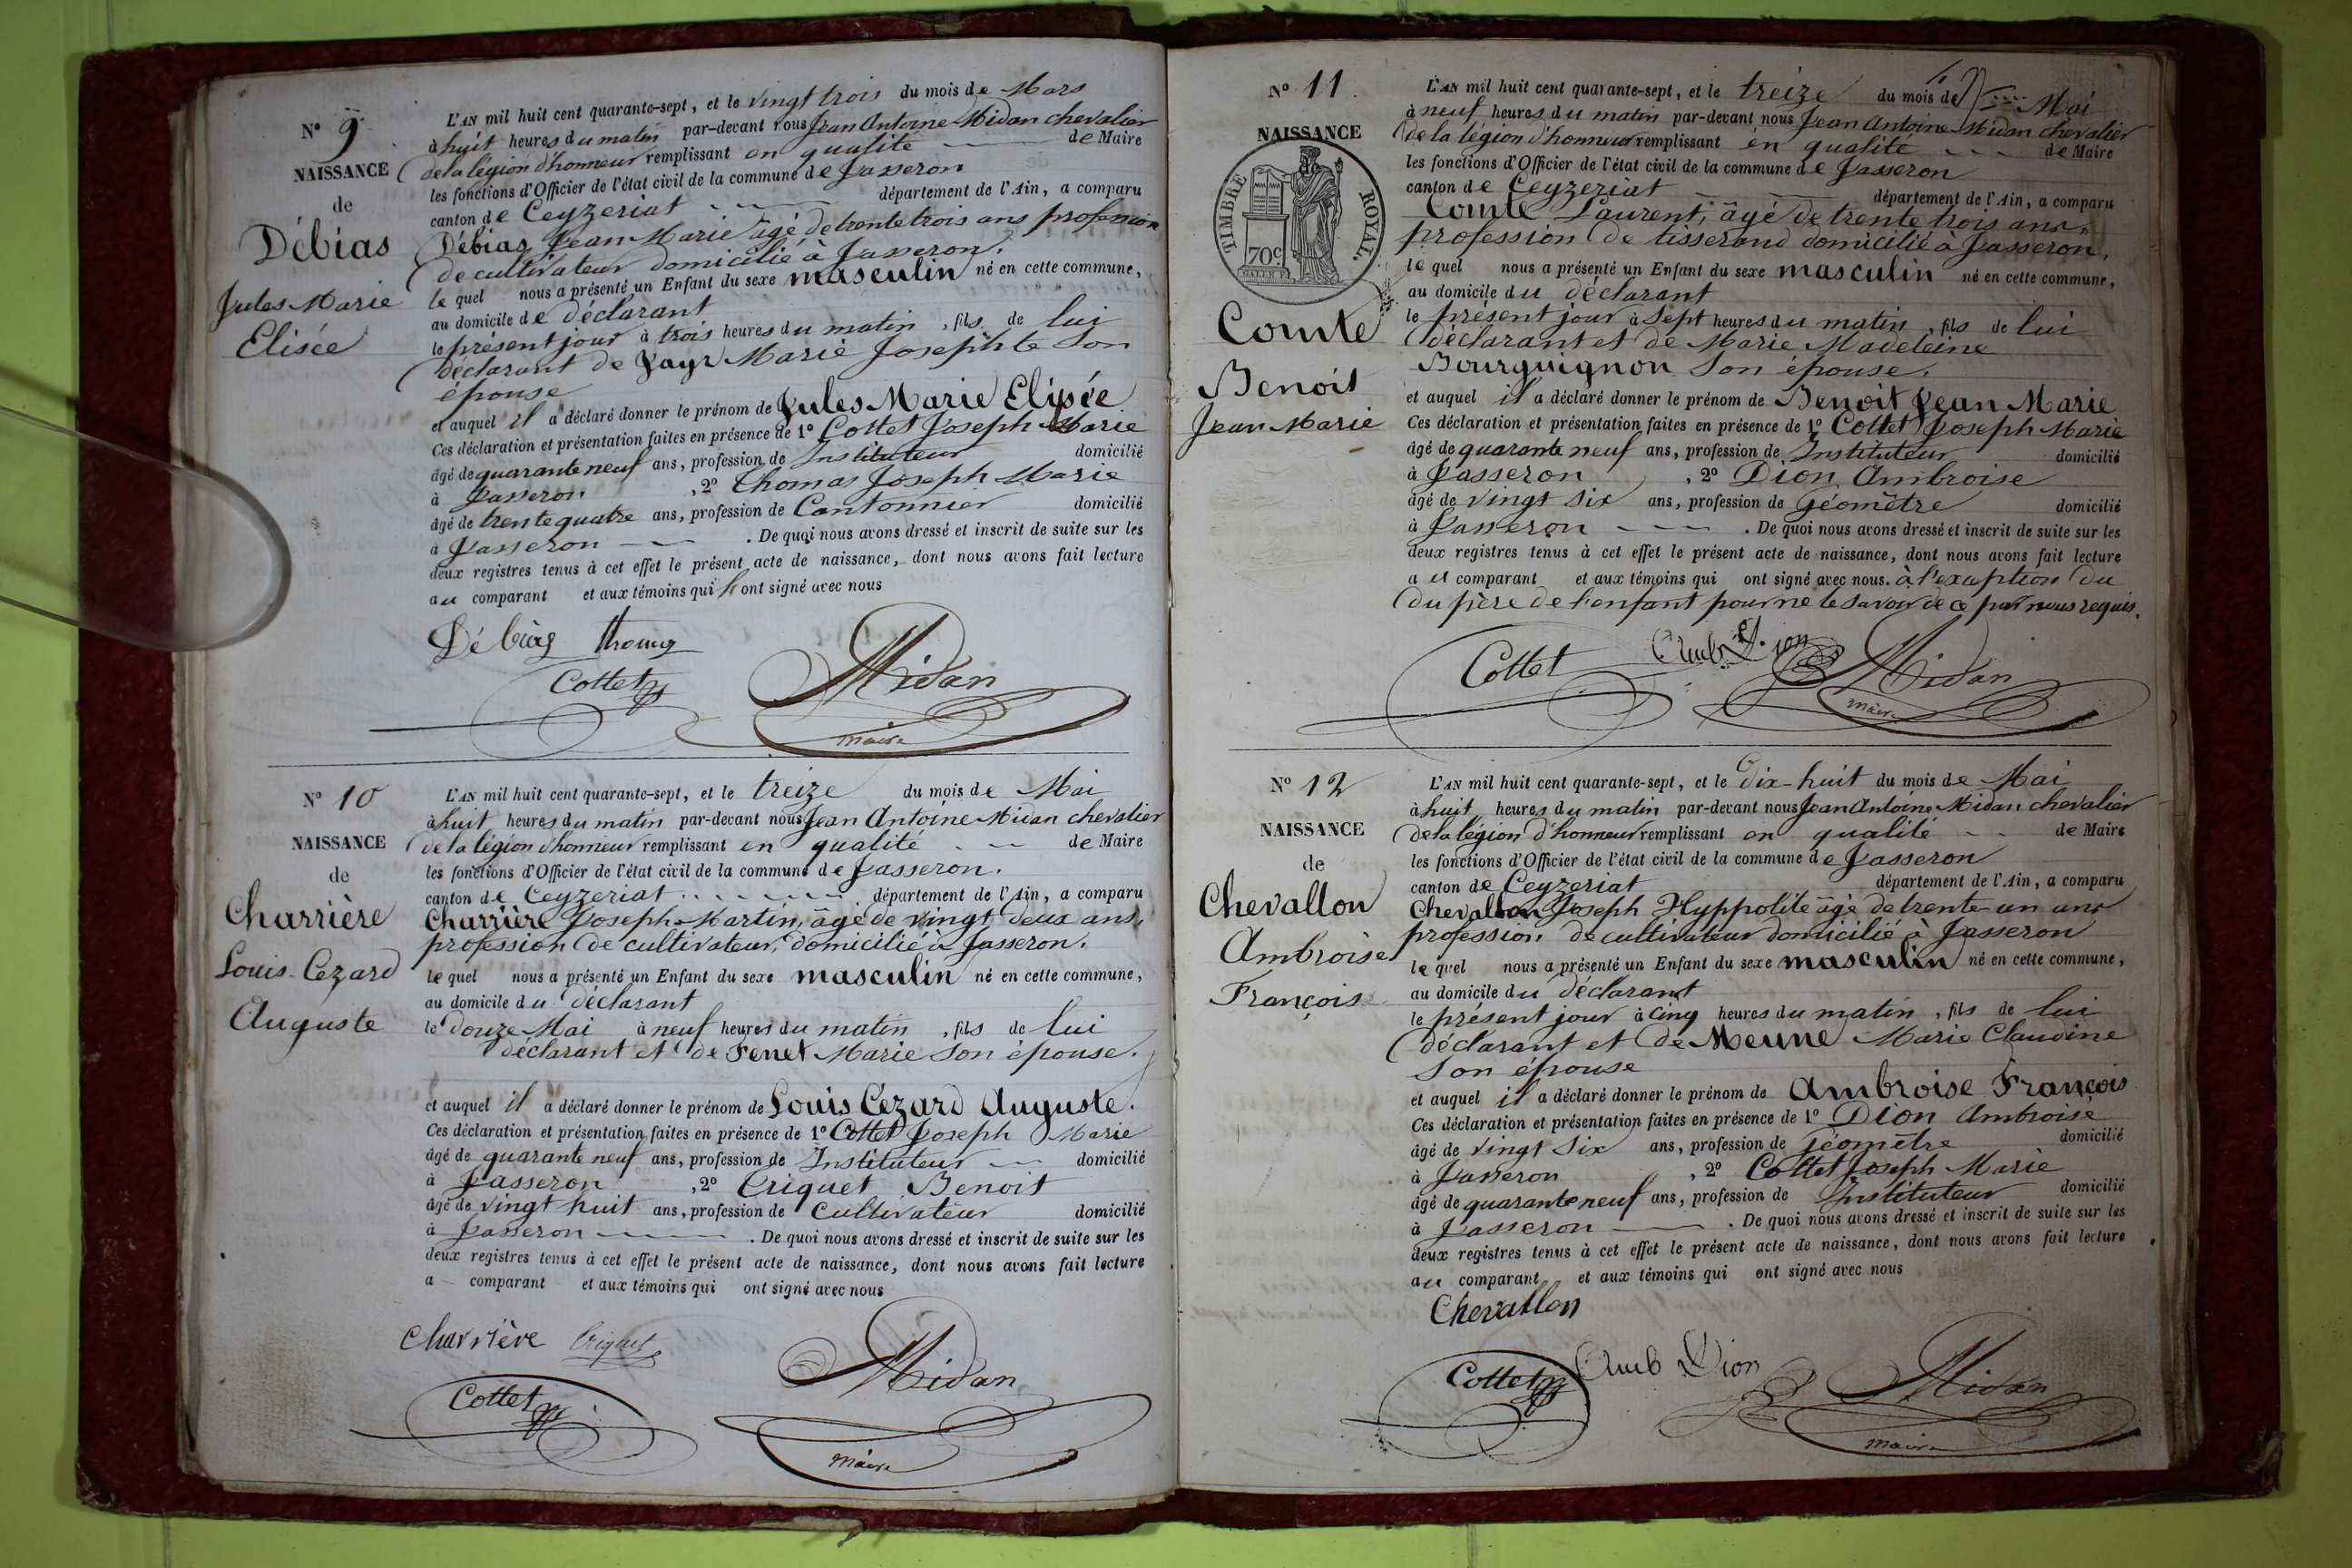 N° 9
NAISSANCE
de
Débias
Jules Marie
Elisée
L'AN mil huit cent quarante-sept, et le vingt trois du mois de Mars
à huit heures du matin par-devant nous Jean Antoine Midan chevalier
de la légion d'honneur remplissant en qualité de Maire
les fonctions d'Officier de l'état civil de la commune de Jasseron
canton de Ceyzeriat département de l'Ain, a comparu
Débias Jean Marie âgé de trente trois ans profession
de cultivateur domicilié à Jasseron.
lequel nous a présenté un Enfant du sexe masculin né en cette commune,
au domicile de déclarant
le présent jour à trois heures du matin, fils de lui
déclarant de Marie Josephte son
épouse
et auquel il a déclaré donner le prénom de Jules Marie Elisée
Ces déclaration et présentation faites en présence de 1° Cottet Joseph Marie
âgé de quarante neuf ans, profession de Instituteur domicilié
à Jasseron , 2° Thomas Joseph Marie
âgé de trente quatre ans, profession de Cantonnier domicilié
à Jasseron . De quoi nous avons dressé et inscrit de suite sur les
deux registres tenus à cet effet le présent acte de naissance, dont nous avons fait lecture
au comparant et aux témoins qui ont signé avec nous
Débias Thomas
Cottet Midan
maire
N° 10
NAISSANCE
de
Charrière
Louis Cezard
Auguste
L'AN mil huit cent quarante-sept, et le treize du mois de Mai
à huit heures du matin par-devant nous Jean Antoine Midan chevalier
de la légion d'honneur remplissant en qualité de Maire
les fonctions d'Officier de l'état civil de la commune de Jasseron.
canton de Ceyzeriat département de l'Ain, a comparu
Charrière Joseph Martin, âgé de vingt deux ans,
profession de cultivateur, domicilié à Jasseron.
lequel nous a présenté un Enfant du sexe masculin né en cette commune,
au domicile du déclarant
le douze Mai à neuf heures du matin, fils de lui
déclarant et de Fenet Marie son épouse.
et auquel il a déclaré donner le prénom de Louis Cézard Auguste.
Ces déclaration et présentation faites en présence de 1° Cottet Joseph Marie
âgé de quarante neuf ans, profession de Instituteur domicilié
à Jasseron , 2° Criquet Benoit
âgé de vingt huit ans, profession de Cultivateur domicilié
à Jasseron . De quoi nous avons dressé et inscrit de suite sur les
deux registres tenus à cet effet le présent acte de naissance, dont nous avons fait lecture
a comparant et aux témoins qui ont signé avec nous
Charrière Criquet
Cottet Midan
maire
N° 11.
NAISSANCE
TIMBRE ROYAL.
70c
Comte
Benoit
Jean Marie
L'AN mil huit cent quarante-sept, et le treize du mois de Mai
à neuf heures du matin par-devant nous Jean Antoine Midan chevalier
de la légion d'honneur remplissant en qualité de Maire
les fonctions d'Officier de l'état civil de la commune de Jasseron
canton de Ceyzeriat département de l'Ain, a comparu
Comte Laurent, âgé de trente trois ans,
profession de tisserand domicilié à Jasseron.
lequel nous a présenté un Enfant du sexe masculin né en cette commune,
au domicile du déclarant
le présent jour à sept heures du matin, fils de lui
déclarant et de Marie Madeleine
Bourguignon son épouse.
et auquel il a déclaré donner le prénom de Benoit Jean Marie
Ces déclaration et présentation faites en présence de 1° Cottet Joseph Marie
âgé de quarante neuf ans, profession de Instituteur domicilié
à Jasseron , 2° Dion Ambroise
âgé de vingt six ans, profession de géomètre domicilié
à Jasseron . De quoi nous avons dressé et inscrit de suite sur les
deux registres tenus à cet effet le présent acte de naissance, dont nous avons fait lecture
au comparant et aux témoins qui ont signé avec nous. à l'exception du
du père de l'enfant pour ne le savoir de ce par nous requis.
Cottet Amb Dion Midan
maire
N° 12
NAISSANCE
de
Chevallon
Ambroise
François
L'AN mil huit cent quarante-sept, et le Dix-huit du mois de Mai
à huit heures du matin par-devant nous Jean Antoine Midan chevalier
de la légion d'honneur remplissant en qualité de Maire
les fonctions d'Officier de l'état civil de la commune de Jasseron
canton de Ceyzeriat département de l'Ain, a comparu
Chevallon Joseph Hyppolite âgé de trente un ans
profession de cultivateur domicilié à Jasseron
lequel nous a présenté un Enfant du sexe masculin né en cette commune,
au domicile du déclarant
le présent jour à cinq heures du matin, fils de lui
déclarant et de Meune Marie Claudine
son épouse
et auquel il a déclaré donner le prénom de Ambroise François
Ces déclaration et présentation faites en présence de 1° Dion Ambroise
âgé de vingt six ans, profession de géomètre domicilié
à Jasseron , 2° Cottet Joseph Marie
âgé de quarante neuf ans, profession de Instituteur domicilié
à Jasseron . De quoi nous avons dressé et inscrit de suite sur les
deux registres tenus à cet effet le présent acte de naissance, dont nous avons fait lecture
au comparant et aux témoins qui ont signé avec nous
Chevallon
Cottet Amb Dion Midan
maire